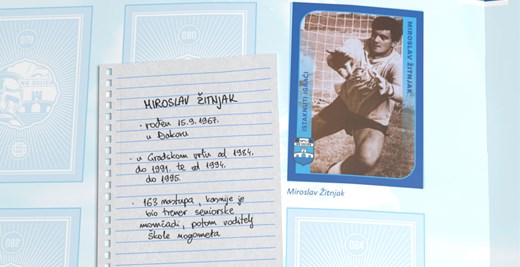 MIROSLAV ŽITNJAK
· rođen 15.9.1967.
u Đakovu
· u Gradskom vrtu od 1984.
do 1991. te od 1994.
do 1995.
· 163 nastupa, kasnije je
bio trener seniorske
momčadi, potom voditelj
škole nogometa
ISTAKNUTI IGRAČI
MIROSLAV ŽITNJAK
Miroslav Žitnjak
079
080